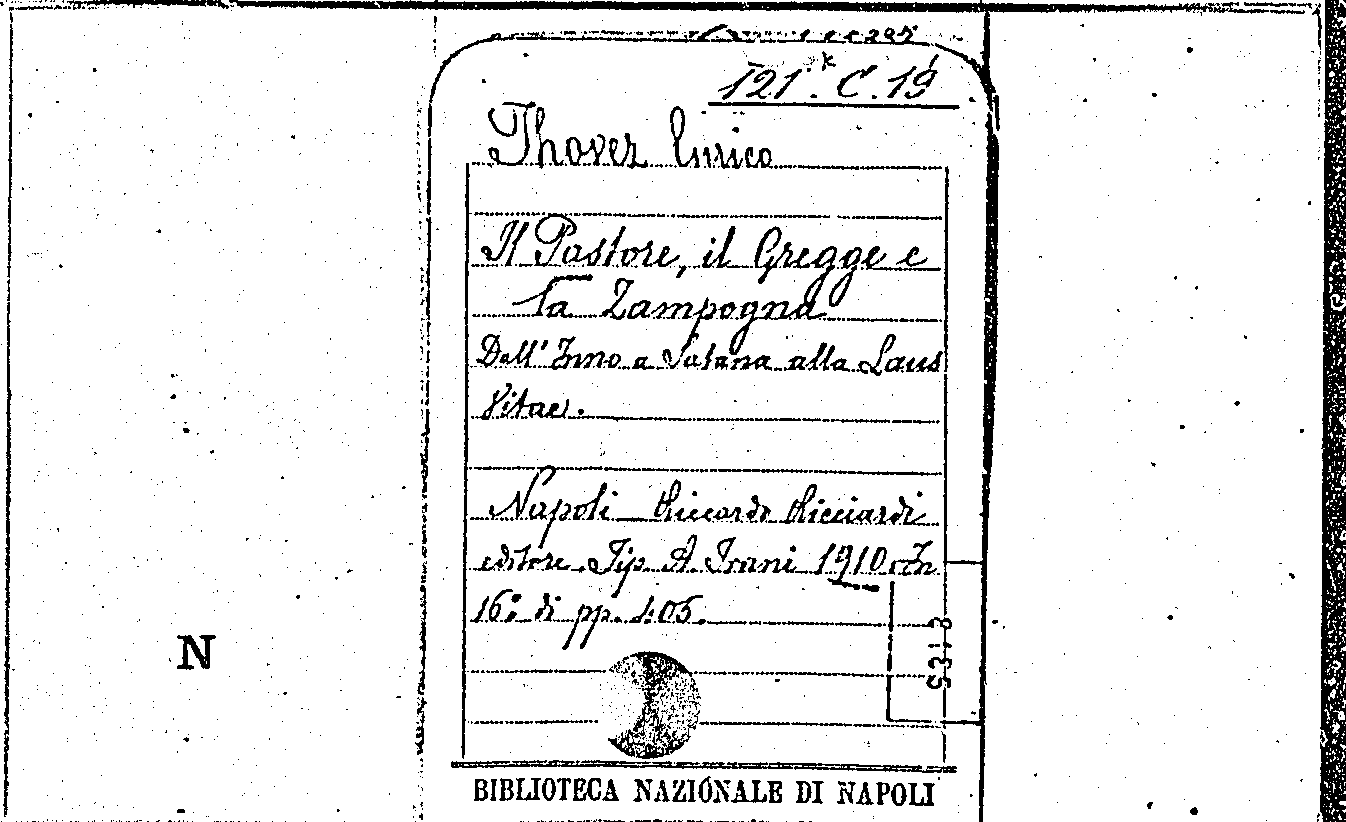 121.* C. 19
Thovez Enrico
Il Pastore, il Gregge e
la Zampogna
Dall'Inno a Satana alla Laus
Vitae.
Napoli Riccardo Ricciardi
editore. Tip. A. Trani 1910. In
16° di pp. 405.
N
BIBLIOTECA NAZIONALE DI NAPOLI